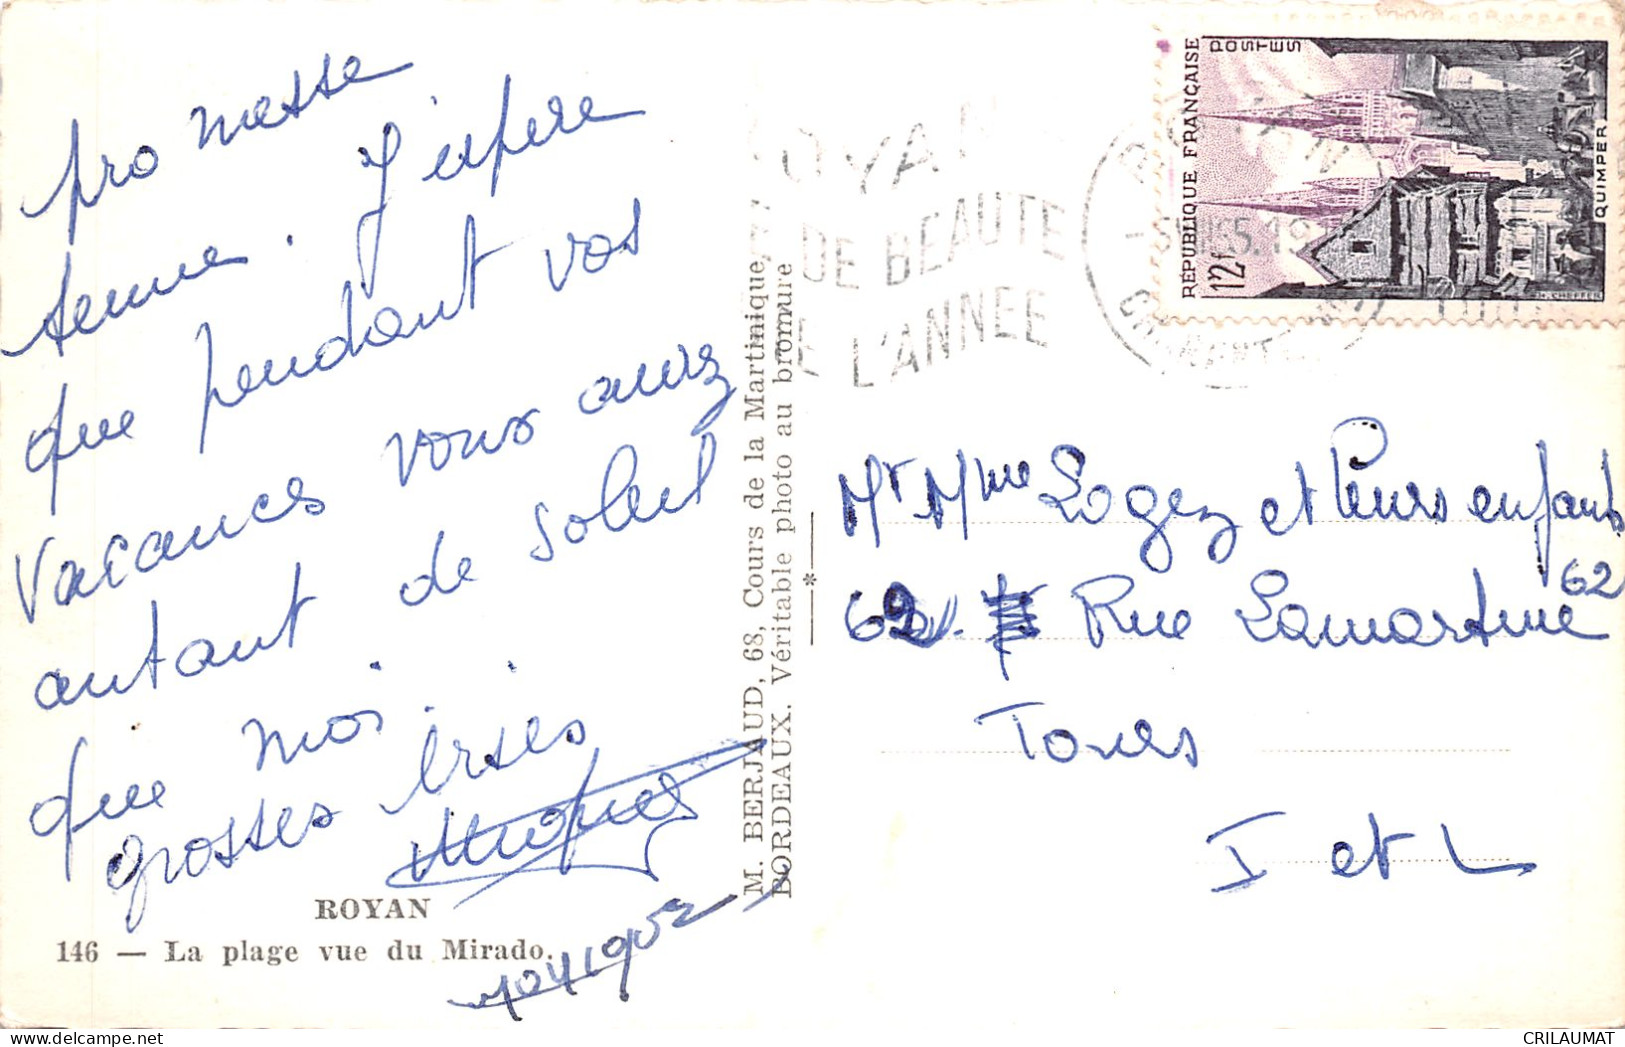 pro messe
tenue. J'espère
que pendant vos
vacances vous aurez
autant de soleil
que moi.
grosses bises
ROYAN
146 — La plage vue du Mirado.
M. BERJAUD, 68, Cours de la Martinique,
BORDEAUX. Véritable photo au bromure
OYAN
DE BEAUTE
E L'ANNEE
POSTES
RÉPUBLIQUE FRANÇAISE
12F
QUIMPER
Mr Mme Logez et leurs enfants
62 Rue Lamartine 62
Tours
I et L
CRILAUMAT